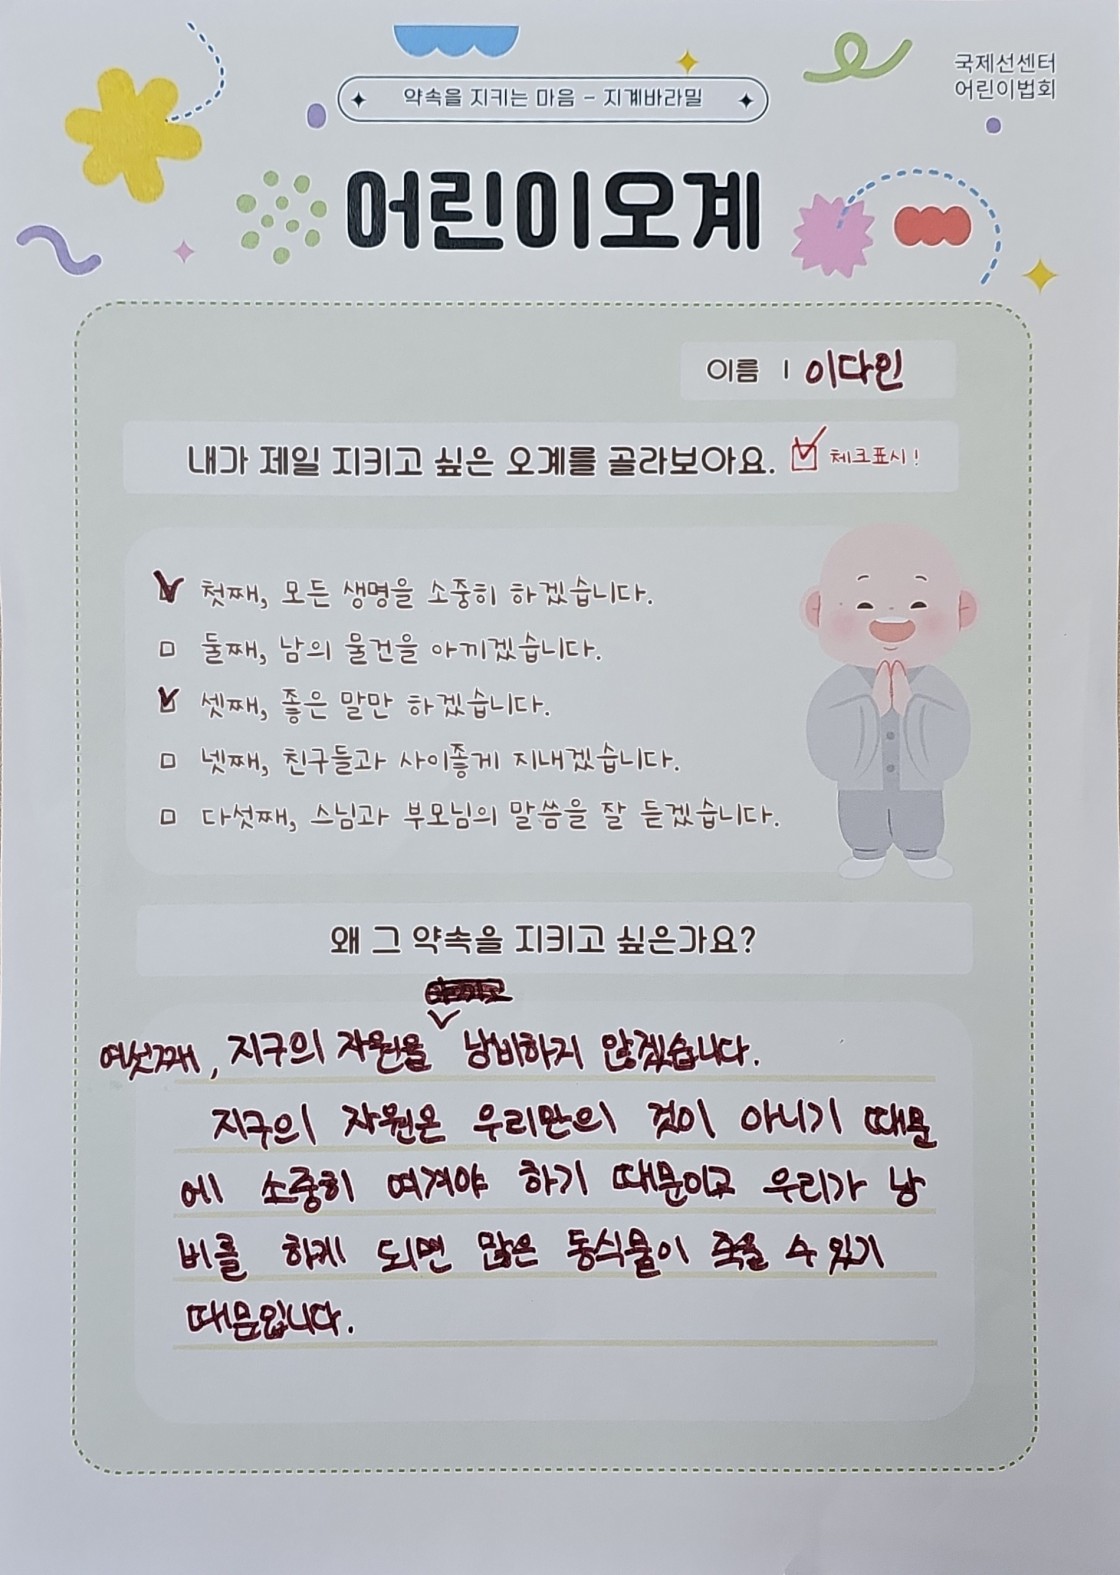 국제선센터
어린이법회
약속을 지키는 마음 - 지계바라밀
어린이오계
이름 | 이다인
내가 제일 지키고 싶은 오계를 골라보아요. 체크표시!
첫째, 모든 생명을 소중히 하겠습니다.
둘째, 남의 물건을 아끼겠습니다.
셋째, 좋은 말만 하겠습니다.
넷째, 친구들과 사이좋게 지내겠습니다.
다섯째, 스님과 부모님의 말씀을 잘 듣겠습니다.
왜 그 약속을 지키고 싶은가요?
여섯째, 지구의 자원을 낭비하지 않겠습니다.
지구의 자원은 우리만의 것이 아니기 때문
에 소중히 여겨야 하기 때문이고 우리가 낭
비를 하게 되면 많은 동식물이 죽을 수 있기
때문입니다.